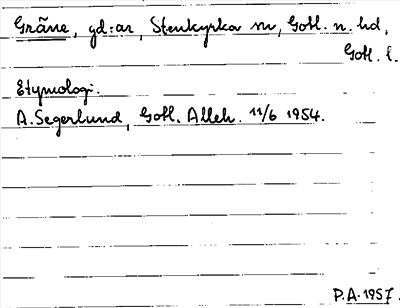 Gräne, gd:ar, Stenkyrka sn, Gotl. n. hd,
Gotl. l.
Etymologi.
A. Segerlund, Gotl. Alleh. 11/6 1954.
P.A. 1957.